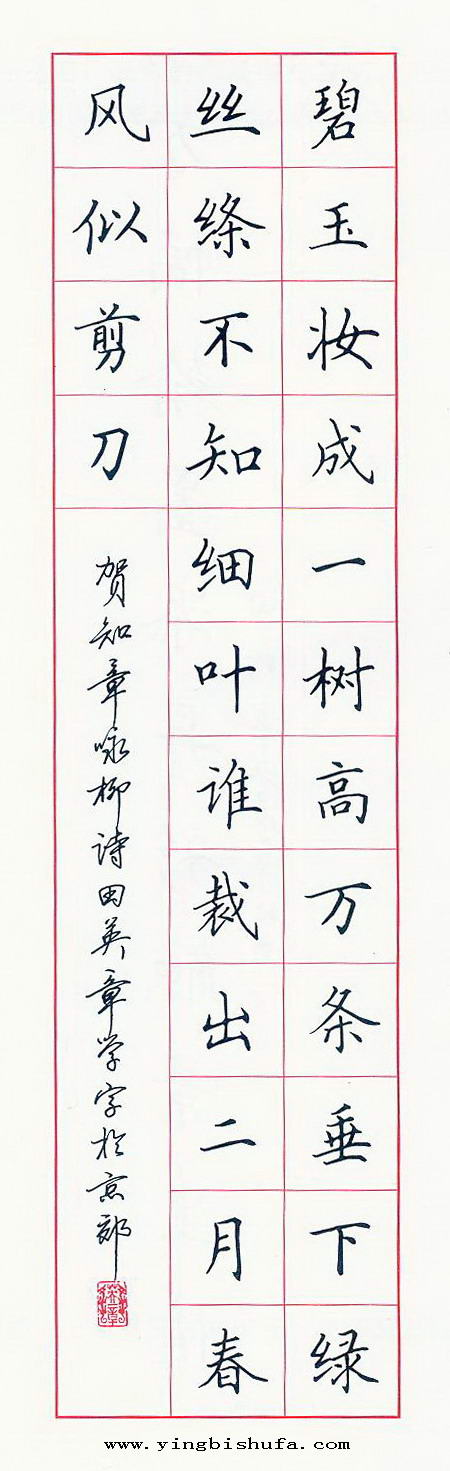 碧玉妆成一树高万条垂下绿
丝绦不知细叶谁裁出二月春
风似剪刀
贺知章咏柳诗田英章学字于京都
英章
www.yingbishufa.com